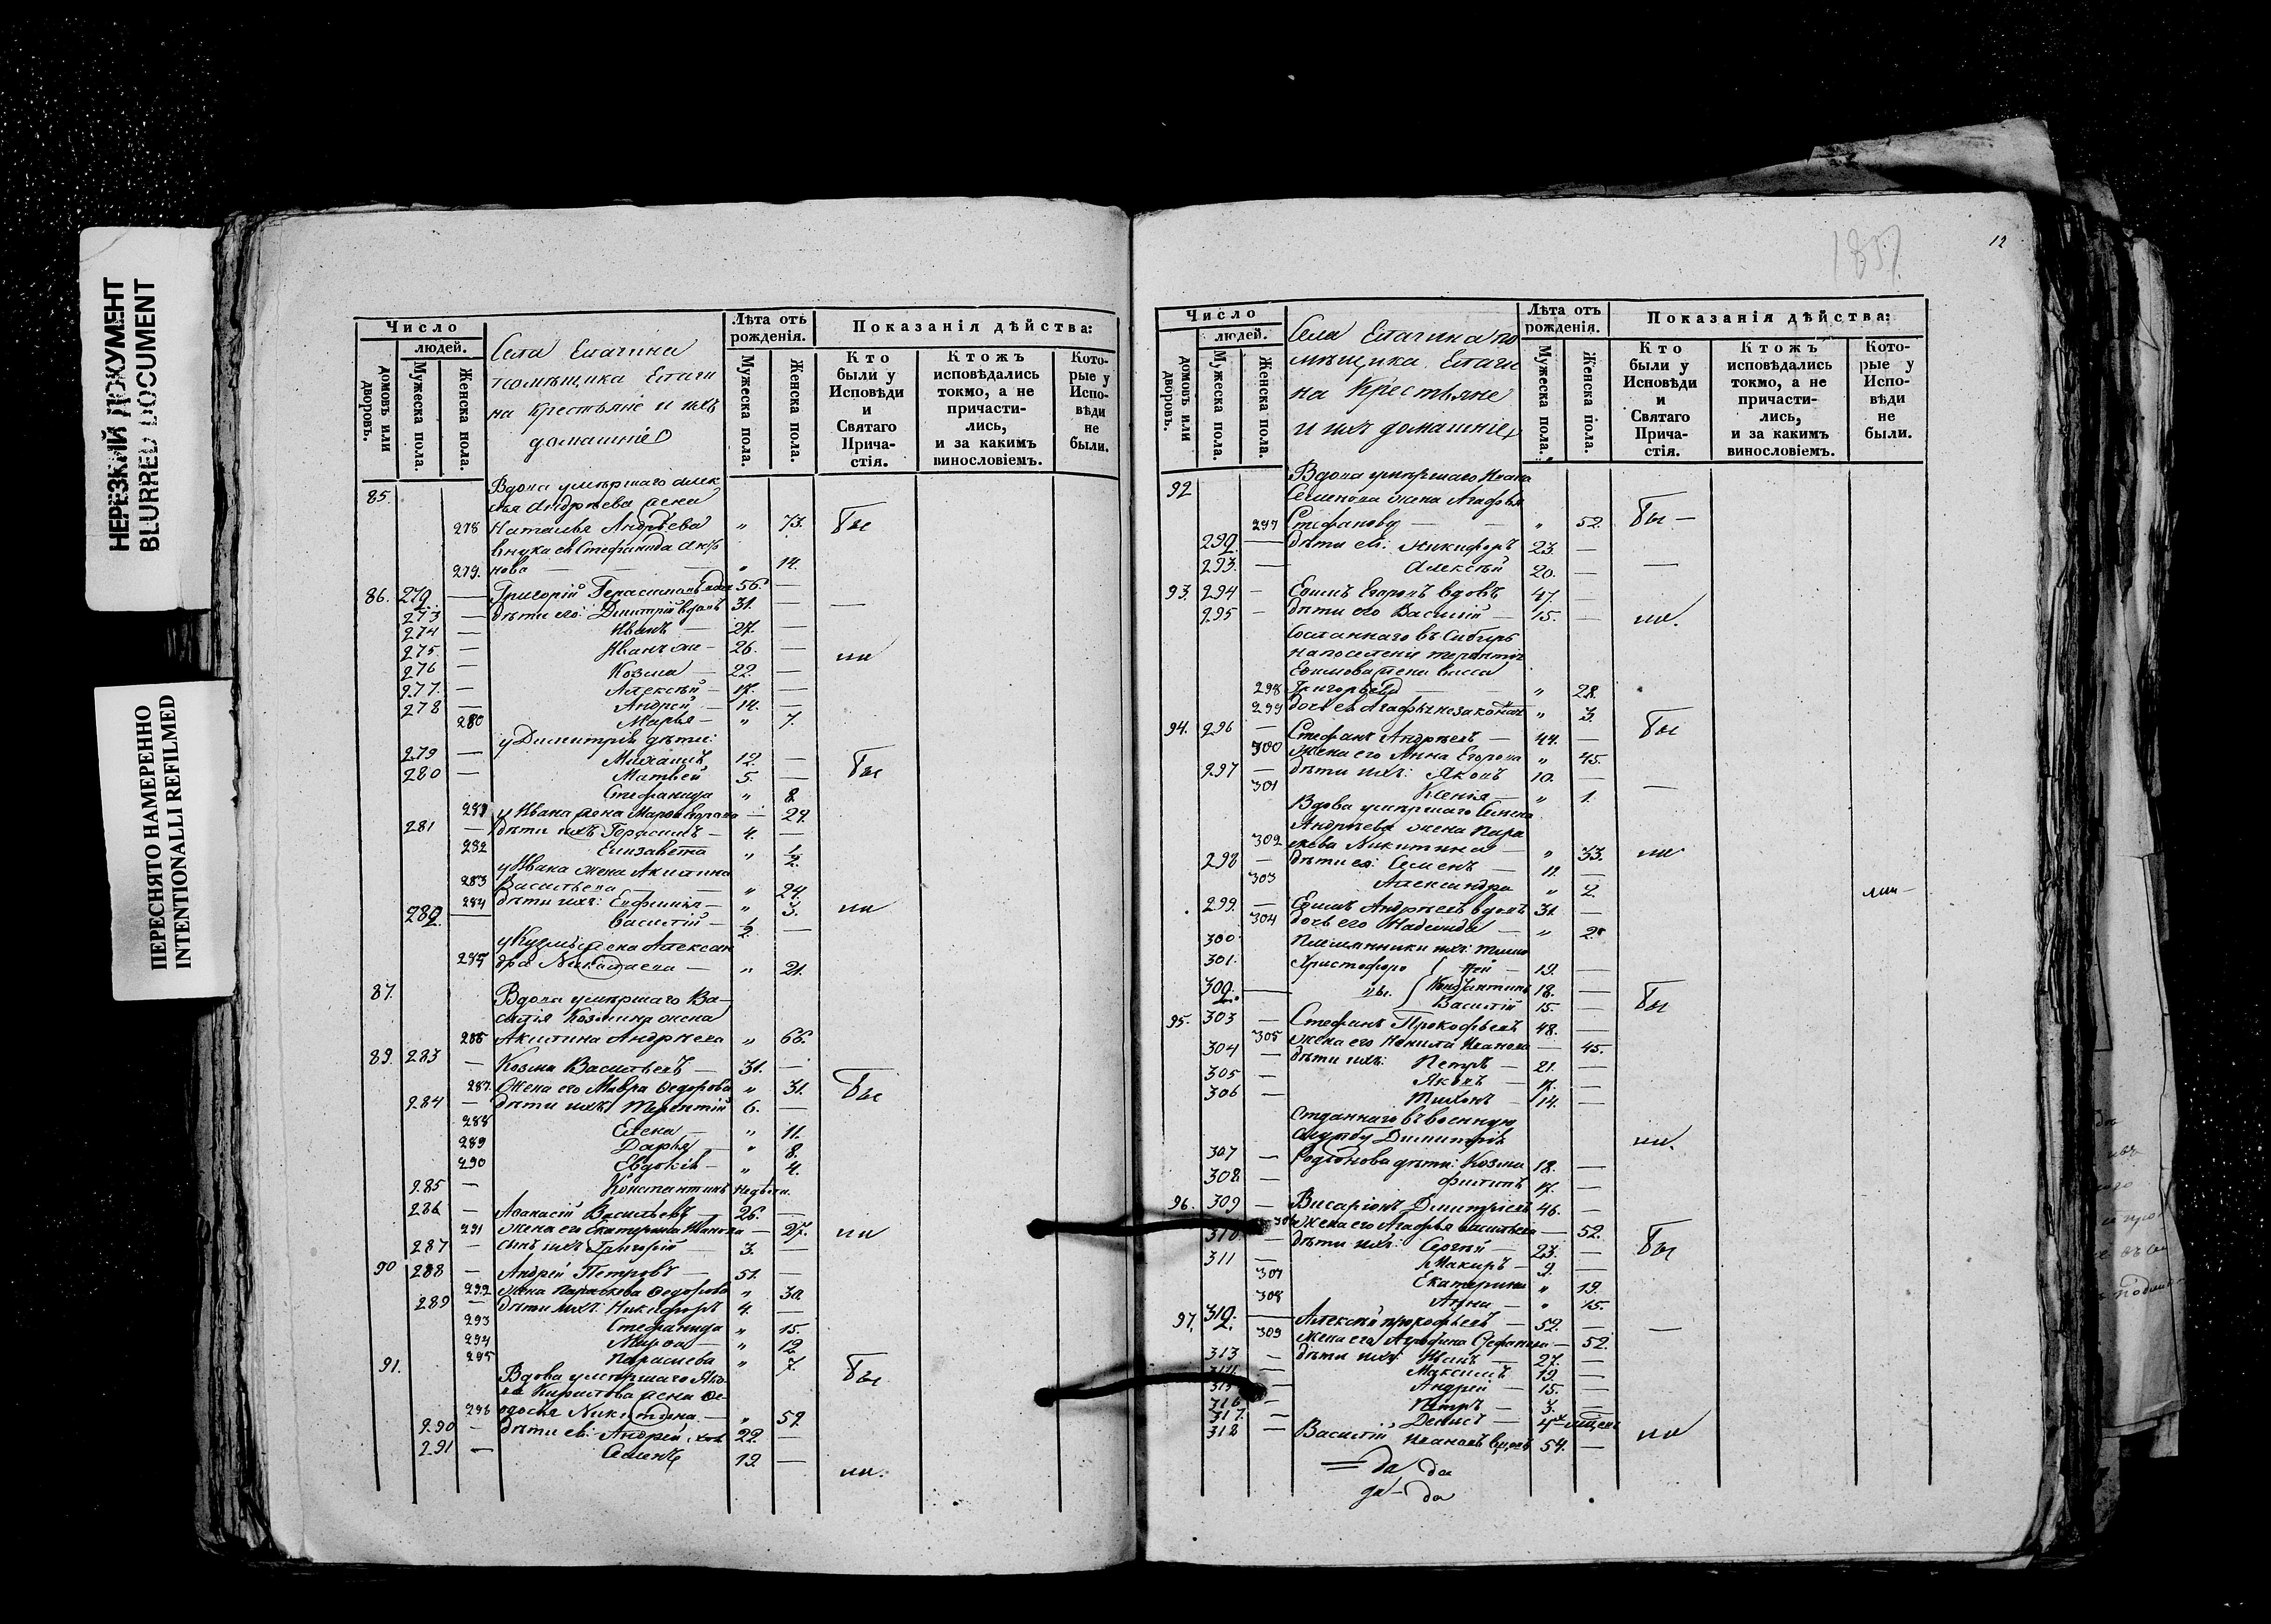 НЕРЕЗКИЙ ДОКУМЕНТ
BLURRED DOCUMENT
ПЕРЕСНЯТО НАМЕРЕННО
INTENTIONALLI REFILMED
Число
людей.
домовъ или дворовъ.
Мужеска пола.
Женска пола.
Села Епагина
помѣщика Епаги
на Крестьяне и ихъ
домашніе
Лѣта отъ рожденія.
Мужеска пола.
Женска пола.
Показанія дѣйства:
Кто были у Исповѣди и Святаго Прича-стія.
Ктожъ исповѣдались токмо, а не причасти-лись, и за какимъ винословіемъ.
Кото-рые у Испо-вѣди не были.
85. Вдова умершаго Алек
сѣя Андрѣева жена
278 Наталья Андрѣева " 73. Бы
внука ея Стефанида
279. нова — — " 14.
86. 272 — Григорій Герасимовъ 56. —
273 — дѣти его: Димитрій вдовъ 31. —
274 — Иванъ — 27. —
275. — Иванъ же — 26. — ли
276 — Козма — 22. —
277. — Алексѣй — 17. —
278 — Андрей — 14. —
280 Марья — " 7.
у Димитрія дѣти:
279 — Михаилъ 12. —
280 — Матвей 5. — Бы
Стефанида " 8.
281 у Ивана жена Марфа — 24.
281 — дѣти ихъ Герасимъ — 4. —
282 Елизавета " 1/2.
у Ивана жена Акилина
283 Васильева — — " 24.
284 дѣти ихъ: Евфимія — " 3. ли
282. — Василій — 1/2. —
у Кузмы жена Алексан
285 дра Николаева — " 21.
87. Вдова умершаго Ва—
силія Козмина жена
286 Акилина Андрѣева " 66.
89. 283 — Козма Васильевъ — 31. —
287. Жена его Мавра Ѳедорова " 31. Бы
284 — дѣти ихъ: Терентій 6. —
288 Елена — " 11.
289 Дарья — " 8.
290 Евдокія — " 4.
285 — Константинъ недѣли.
286 — Аѳанасій Васильевъ — 26. —
291 жена его Екатерина Иванова — 27. ли
287 — сынъ ихъ Григорій — 3. —
90 288 — Андрей Петровъ — 51. —
292 жена Параскева Ѳедорова " 30
289 — дѣти ихъ: Никифоръ 4. —
293 Стефанида " 15.
294 " 12
295 Парасшева " 7.
91. Вдова умершаго Яко
ва Кирилова жена Ѳе
296 одосья Никитина — " 59. Бы
290 — дѣти ея: Андрей, хол 22. —
291 — Семенъ 19. — ли.
1857
12
Число
людей.
домовъ или дворовъ.
Мужеска пола.
Женска пола.
Села Епагина по
мѣщика Епаги
на Крестьяне
и ихъ домашніе
Лѣта отъ рожденія.
Мужеска пола.
Женска пола.
Показанія дѣйства:
Кто были у Исповѣди и Святаго Прича-стія.
Ктожъ исповѣдались токмо, а не причасти-лись, и за какимъ винословіемъ.
Кото-рые у Испо-вѣди не были.
92 Вдова умершаго Ивана
Семенова жена Агафья
297 Стефанову — — " 52. Бы —
292. — дѣти ея: Никифоръ 23. —
293. — Алексѣй 20. — —
93. 294 — Ефимъ Егоровъ вдовъ 47. —
295 — дѣти его Василій — 15. — ли.
Сосланнаго въ Сибирь
на поселеніе Терентія
Ефимова жена
298 Григорьева — " 28.
299 дочь ея Агафья незаконая " 3.
94. 296 — Стефанъ Андрѣевъ — 44. — Бы
300 жена его Анна Егорова " 45.
297 — дѣти ихъ: Яковъ 10. —
301 Ксенія — " 1. —
Вдова умершаго Семена
Андрѣева жена Пара
302 скева Никитина — " 33. ли
298 — дѣти ея: Семенъ — 11 —
303 Александра " 2. ли —
299. — Ефимъ Андрѣевъ вдовъ 31. —
304 дочь его Надежда — " 2
300 Племянники ихъ: Тимо
301. Христофоро { фей — 19. —
302. — вы. { Константинъ 18. —
Василій 15. — Бы
95. 303 — Стефанъ Прокофьевъ 48. —
305 жена его Ненила Иванова — 45.
304 — дѣти ихъ: Петръ — 21. —
305 — Яковъ — 17. —
306 — Тихонъ — 14. —
Отданнаго въ военную
службу Димитрія ли.
307 — Родіонова дѣти: Козма 18. —
308 — Филипъ 17. —
96. 309 — Висаріонъ Димитріевъ 46. —
306 жена его Агафья Васильева — 52.
310 — дѣти ихъ: Сергѣй — 23. — Бы
311 — Макиръ — 9. —
307 Екатерина " 19.
308 Анна — " 15.
97. 312. — Алексѣй Прокофьевъ — 52. — —
309 жена его Агафина Стефанова — 52.
313 — дѣти ихъ: Иванъ — 27. —
314 — Максимъ 19. —
315 — Андрей — 15. —
316 — Петръ — 3. —
317. — Денисъ —
318 — Василій Ивановъ вдовъ 54. — ли
= да да
да — да